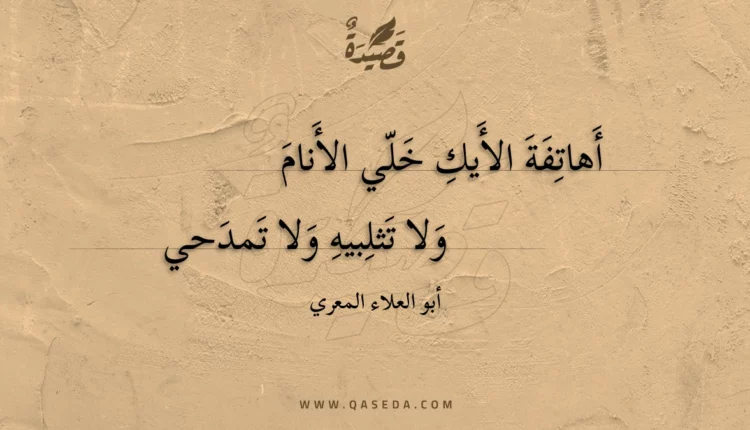 قَصِيدَةٌ
أَهاتِفَةَ الأَيكِ خَلّي الأَنامَ
وَلا تَثلِبيهِ وَلا تَمدَحي
أبو العلاء المعري
WWW.QASEDA.COM